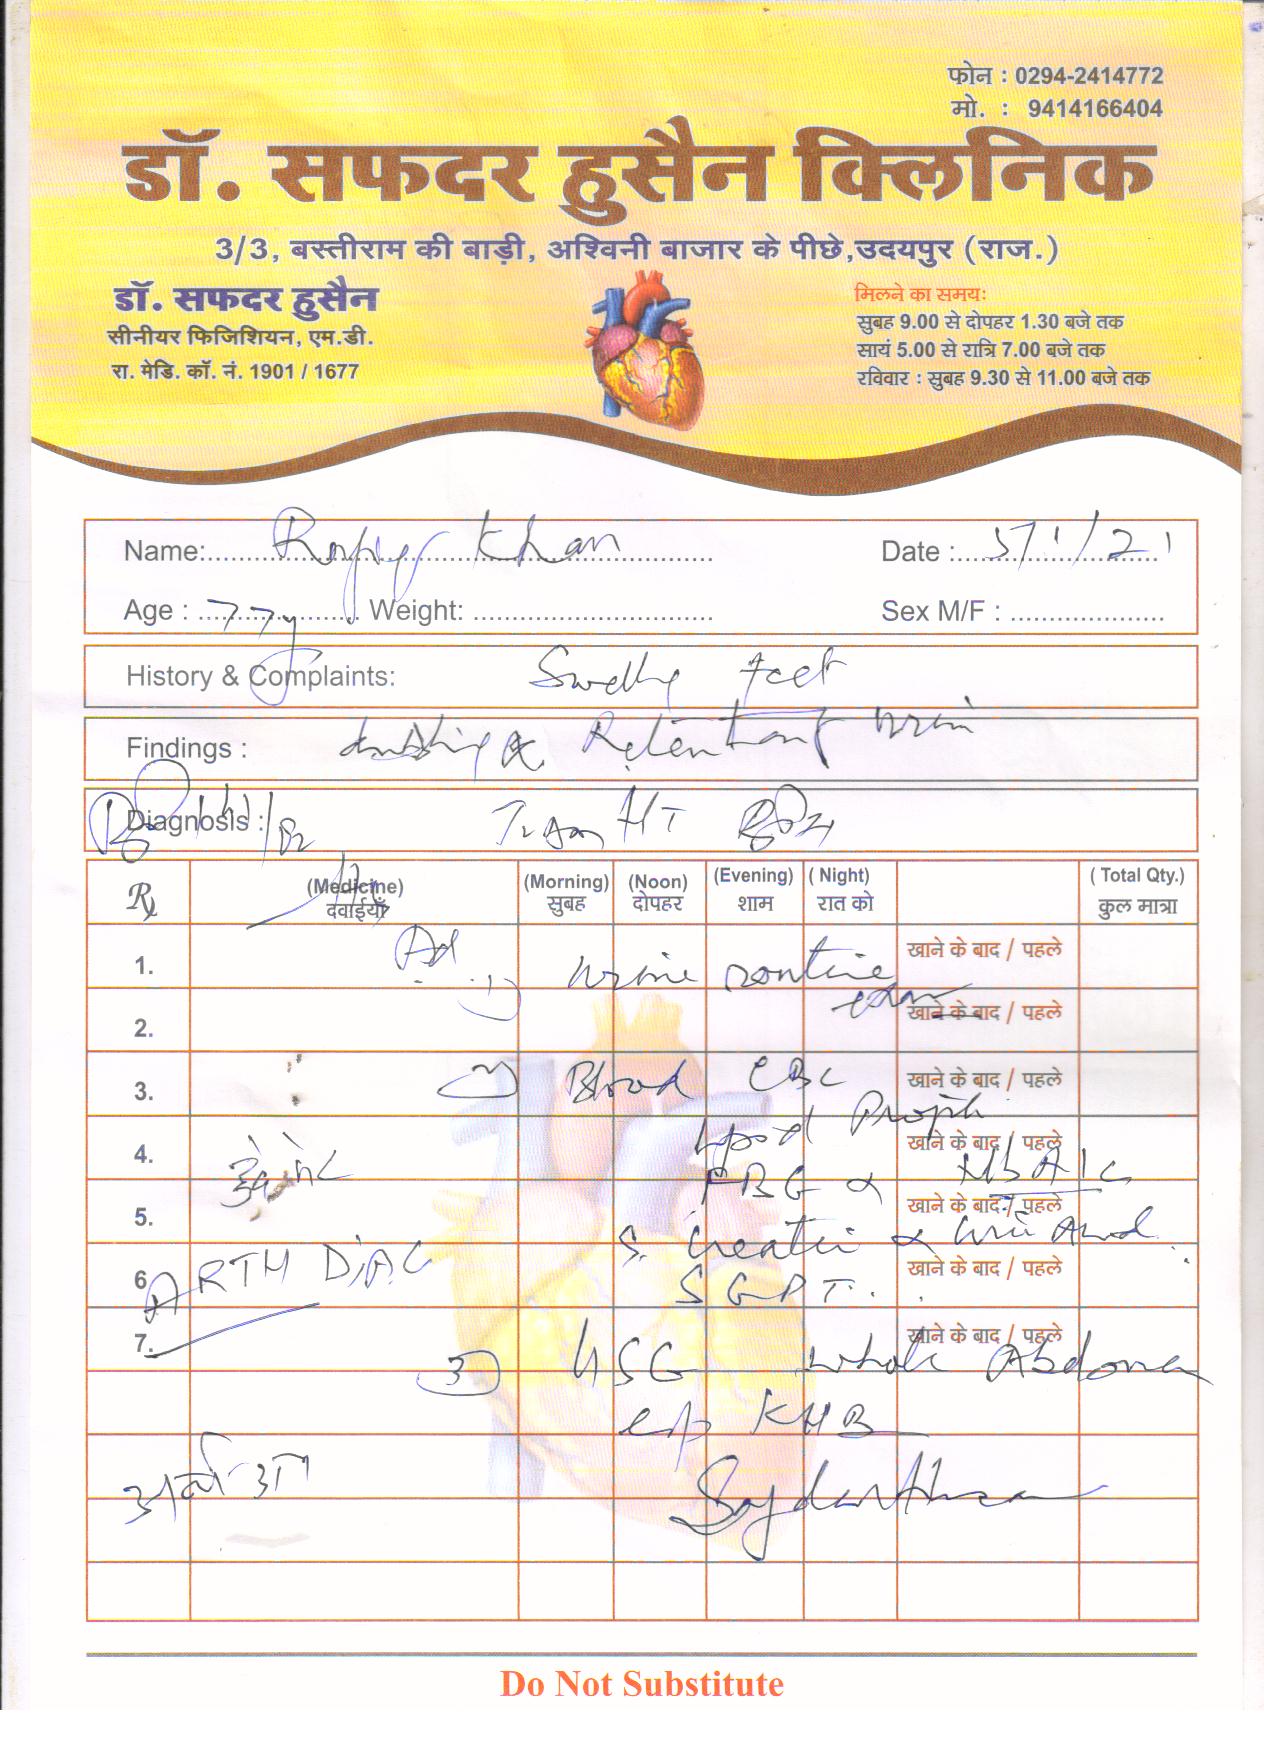 फोन : 0294-2414772
मो. : 9414166404
डॉ. सफदर हुसैन क्लिनिक
3/3, बस्तीराम की बाड़ी, अश्विनी बाजार के पीछे,उदयपुर (राज.)
डॉ. सफदर हुसैन
सीनीयर फिजिशियन, एम.डी.
रा. मेडि. कॉ. नं. 1901 / 1677
मिलने का समयः
सुबह 9.00 से दोपहर 1.30 बजे तक
सायं 5.00 से रात्रि 7.00 बजे तक
रविवार : सुबह 9.30 से 11.00 बजे तक
Name: Khan Date : 5/1/21
Age : 77y Weight: Sex M/F :
History & Complaints: Swelling feet
Findings : Retention of urine
Diagnosis : HT
Rx (Medicine) (Morning) (Noon) (Evening) (Night) (Total Qty.)
दवाईयाँ सुबह दोपहर शाम रात को कुल मात्रा
1. Ad 1) urine routine खाने के बाद / पहले
2. exam खाने के बाद / पहले
3. 2) Blood CBC खाने के बाद / पहले
Lipid Profile
4. खाने के बाद / पहले
FBG & HbA1C
5. खाने के बाद / पहले
S. Creatin & Uric Acid
6 ARTH DIAG खाने के बाद / पहले
SGPT
7. खाने के बाद / पहले
3 USG whole Abdomen
esp KUB
Do Not Substitute